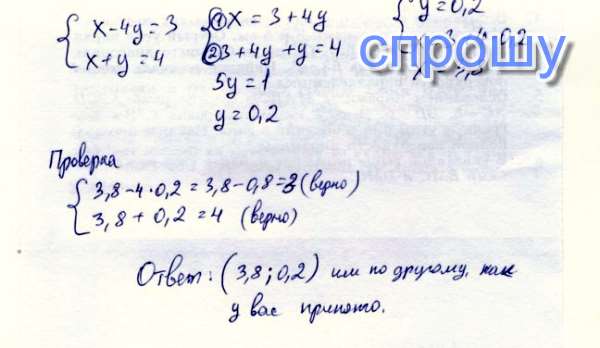 x - 4y = 3
x + y = 4
① x = 3 + 4y
② 3 + 4y + y = 4
5y = 1
y = 0,2
y = 0,2
спрошу
Проверка
3,8 - 4·0,2 = 3,8 - 0,8 = 3 (верно)
3,8 + 0,2 = 4 (верно)
Ответ: (3,8; 0,2) или по другому, как
у вас принято.